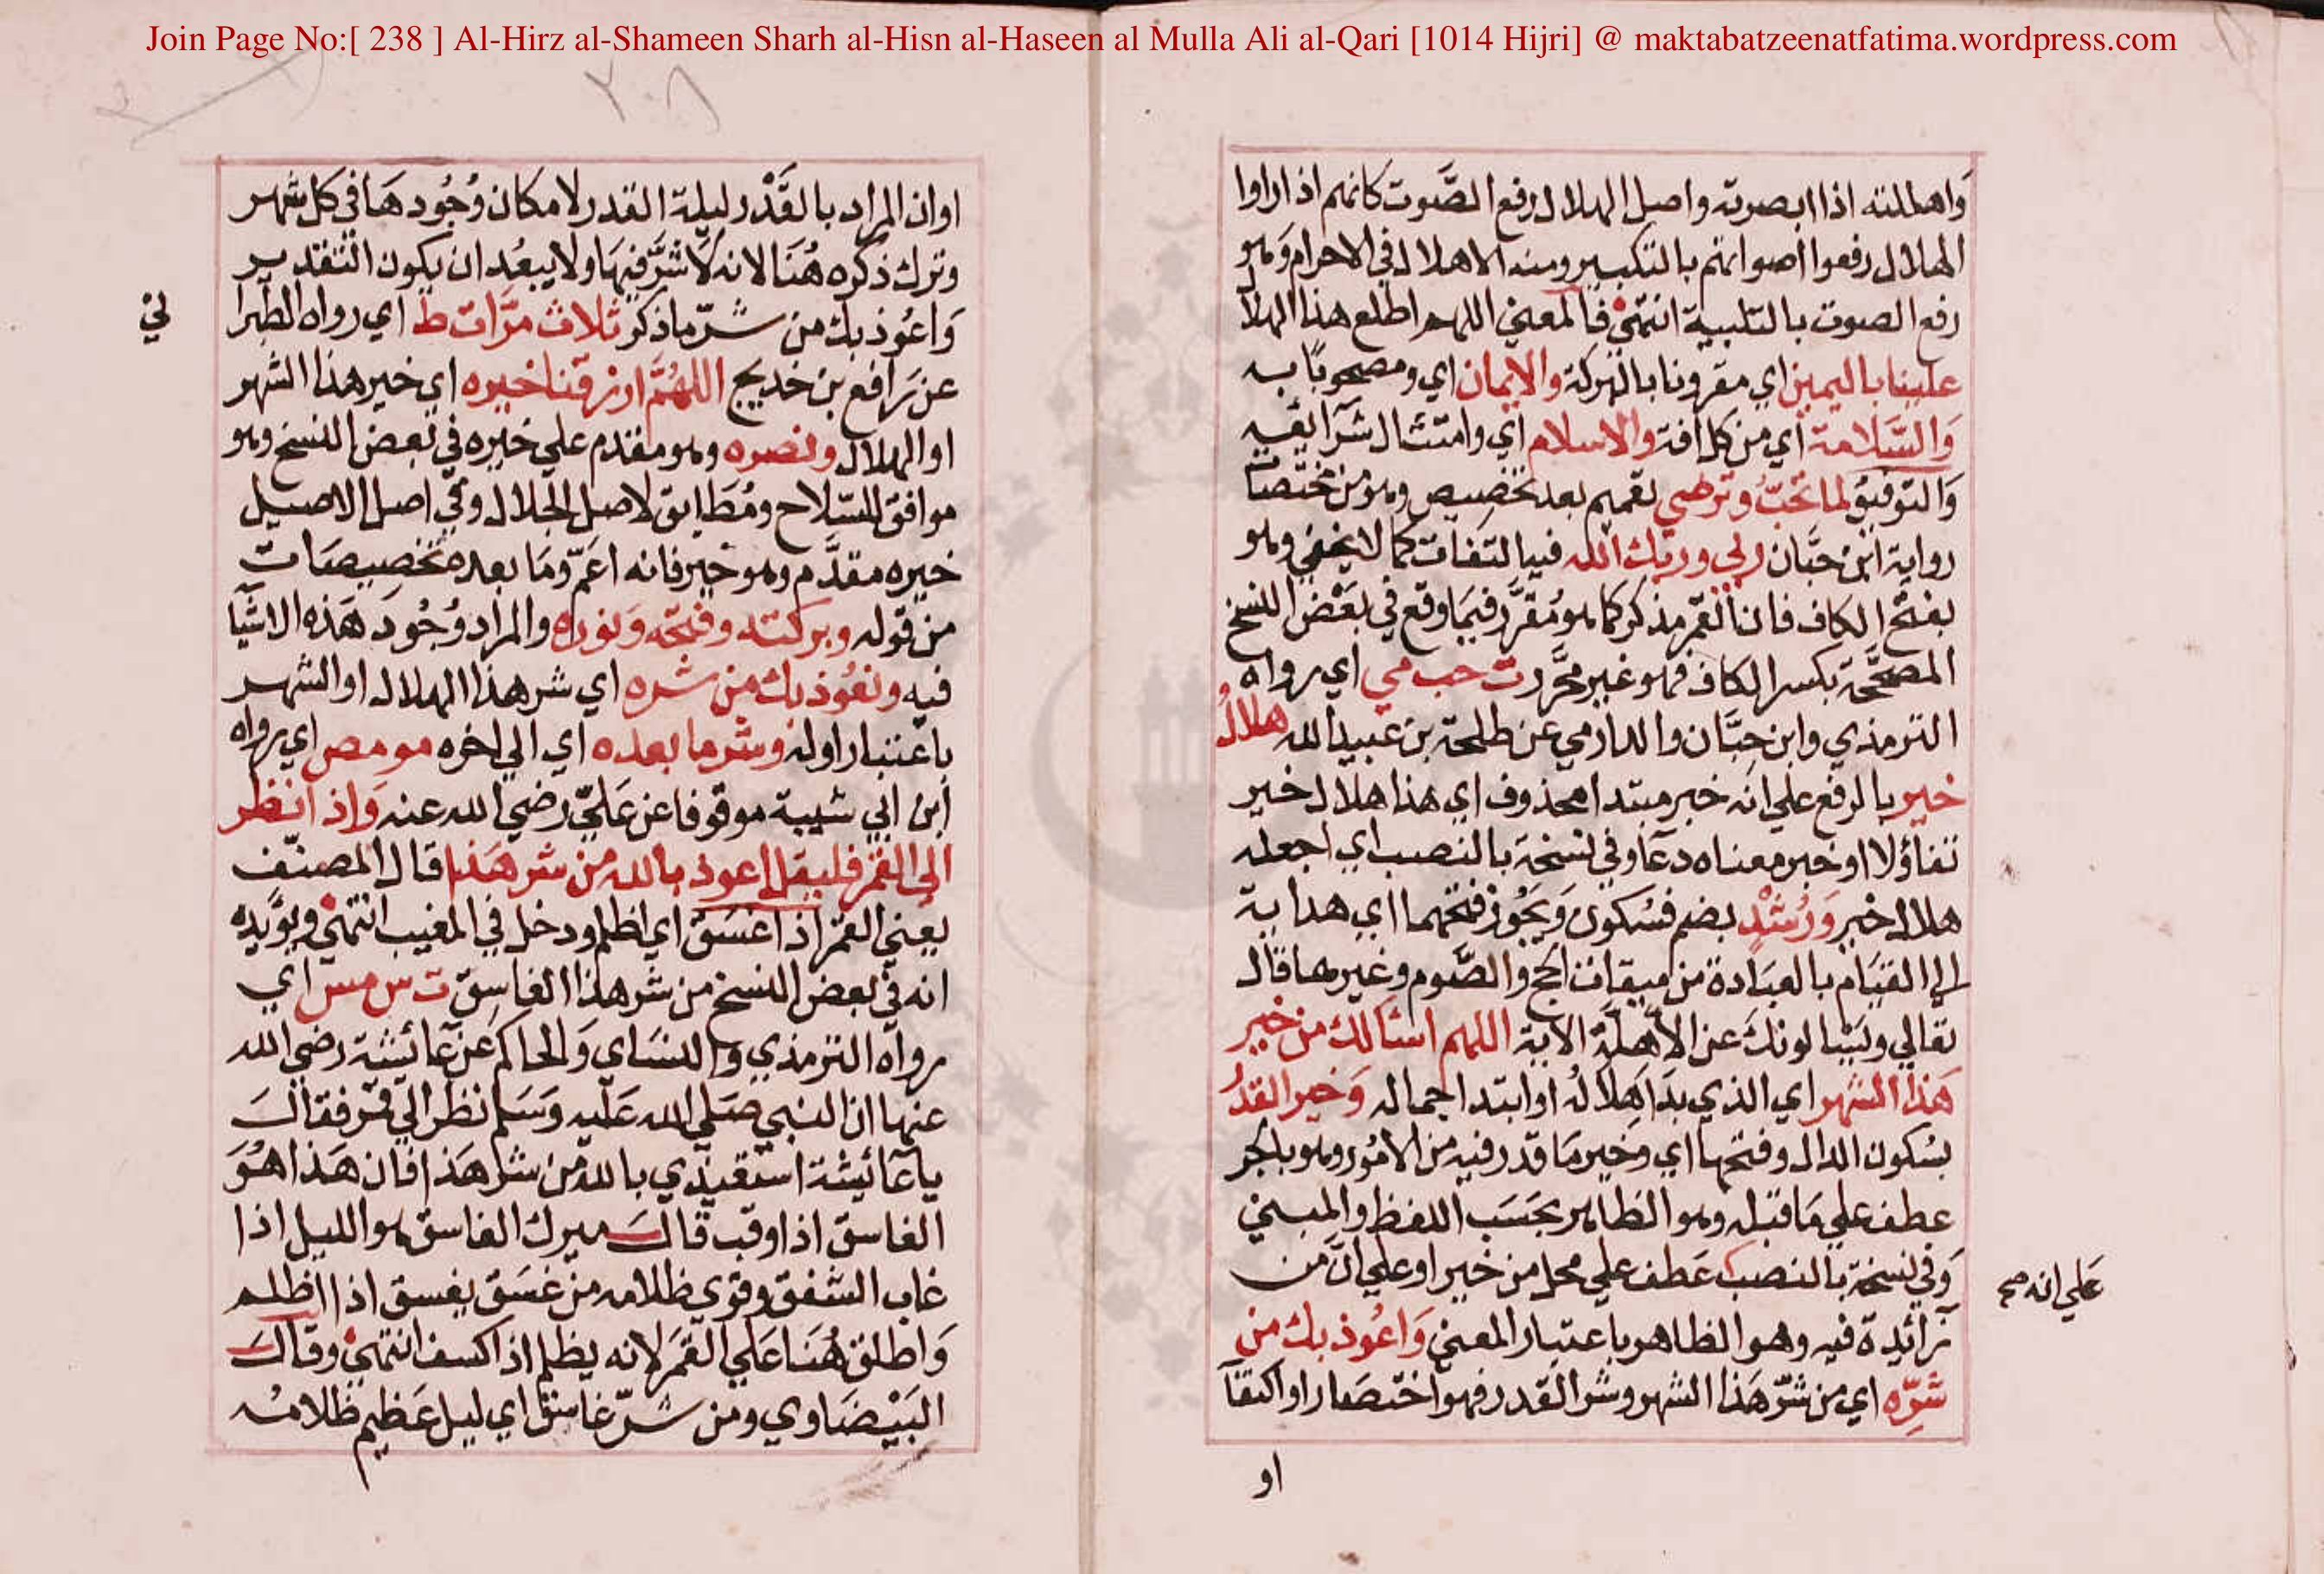 Join Page No:[ 238 ] Al-Hirz al-Shameen Sharh al-Hisn al-Haseen al Mulla Ali al-Qari [1014 Hijri] @ maktabatzeenatfatima.wordpress.com
واهللته اذا ابصرته واصل الهلال رفع الصَّوت كانهم اذا راوا
الهلال رفعوا اصواتهم بالتكبير ومنه الاهلال في الاحرام وهو
رفع الصوت بالتلبية انتهى فالمعني اللهم اطلع هذا الهلا
علينا باليمين اي مقرونا بالبركة والايمان اي ومصحوبًا به
وَالسَّلامة اي من كل افة والاسلام اي وامتثال شرَايعه
وَالتوفيق لما تحبّ وترضي تعميم بعد تخصيص وهو من مختصات
رواية ابن حبَّان ربي وربك الله فيه التفات كما لا يخفي وهو
بفتح الكاف فان القمر مذكر كما هو مُقرَّر فيمَا وقع في بَعْض النسخ
المصحَّحة بكسر الكاف فهو غير محَّرر ت حب مي اي رواه
الترمذي وابن حِبَّان والدارمي عن طلحة بن عبيد الله هلالُ
خير بالرفع علي انه خبر مبتدا محذوف اي هذا هلال خير
تفاؤلا او خبر معناه دعَا وفي نسخة بالنصب اي اجعله
هلال خير وَرُشْدٍ بضم فسُكون وَيَجُوز فتحهما اي هداية
الي القيَام بالعبَادة من ميقات الحج والصَّوم وغيرهما قال
تعالي ويَسْالونك عن الاهلَّة الاية اللهم اسالك من خير
هَذا الشهر اي الذي بدَا هِلالُه او ابتدا جماله وَخير القدْر
بسُكون الدال وفتحها اي وخير مَا قدر فيه من الامُور وهو بالجر
عطف علي مَا قبله وهو الظاهر بحَسَب اللفظ والمبني
وَفي نسخة بالنصب عَطف علي محل من خير او علي انّ من
علي انه صح
زائدة فيه وهو الظاهر باعتبار المعنى وَاعُوذ بك من
شَرِّه اي من شرّ هَذا الشهر وشر القدر فهو اختصَار او اكتفآ
او
او ان المراد بالقَدْر ليلة القدر لامكان وُجُودهَا في كل شهر
وترك ذكره هُنَا لانه لَا شرَّ فيهَا ولا يبعُد ان يكون التقدير
وَاعُوذ بك من شرّ ما ذكر ثلاث مرَّات ط اي رواه الطبرا
ني
عن رَافع بن خديج اللهُمَّ ارزقنا خيره اي خير هذا الشهر
او الهلال ونصره وهو مقدم علي خيره في بعض النسخ وهو
موافق للسّلاح ومُطَابق لاصل الجلال وفي اصل الاصيل
خيره مقدَّم وهو خير فانه اعَمّ وَمَا بعده مخصيصَات
من قوله وبركته وفتحه وَنوره والمراد وُجُودَ هَذه الاشيَا
فيه ونعُوذ بك من شره اي شر هذا الهلال او الشهر
باعتبار اوله وشر ما بعده اي الي اخره مو مص اي رواه
ابن ابي شيبة موقوفا عن عَليّ رضي الله عنه وَاذا نظر
الى القمر فليقل اعوذ بالله من شر هَذا قال المصنّف
يعني القمر اذا غسَقَ اي اظلم ودخل في المغيب انتهى ويؤيده
انه في بعض النسخ من شر هذا الغاسِق ت س مس اي
رواه الترمذي والنسَاي وَالحاكم عن عَائيشة رضي الله
عنها ان النبي صَلي الله عَليه وَسَلم نظر الي قمر فقالَ
يا عَائيشة استعيذي بالله من شر هَذا فان هَذا هُوَ
الغاسق اذا وقب قالَ ميرك الغاسق هو الليل اذا
غاب الشفق وقوي ظلامه من غسَق يغسق اذا اظلم
وَاطلق هُنَا عَلي القمَر لانه يظلم اذا كسف انتهي وقالَ
البَيْضَاوي ومن شرّ غاسق اي ليل عَظيم ظلامُه